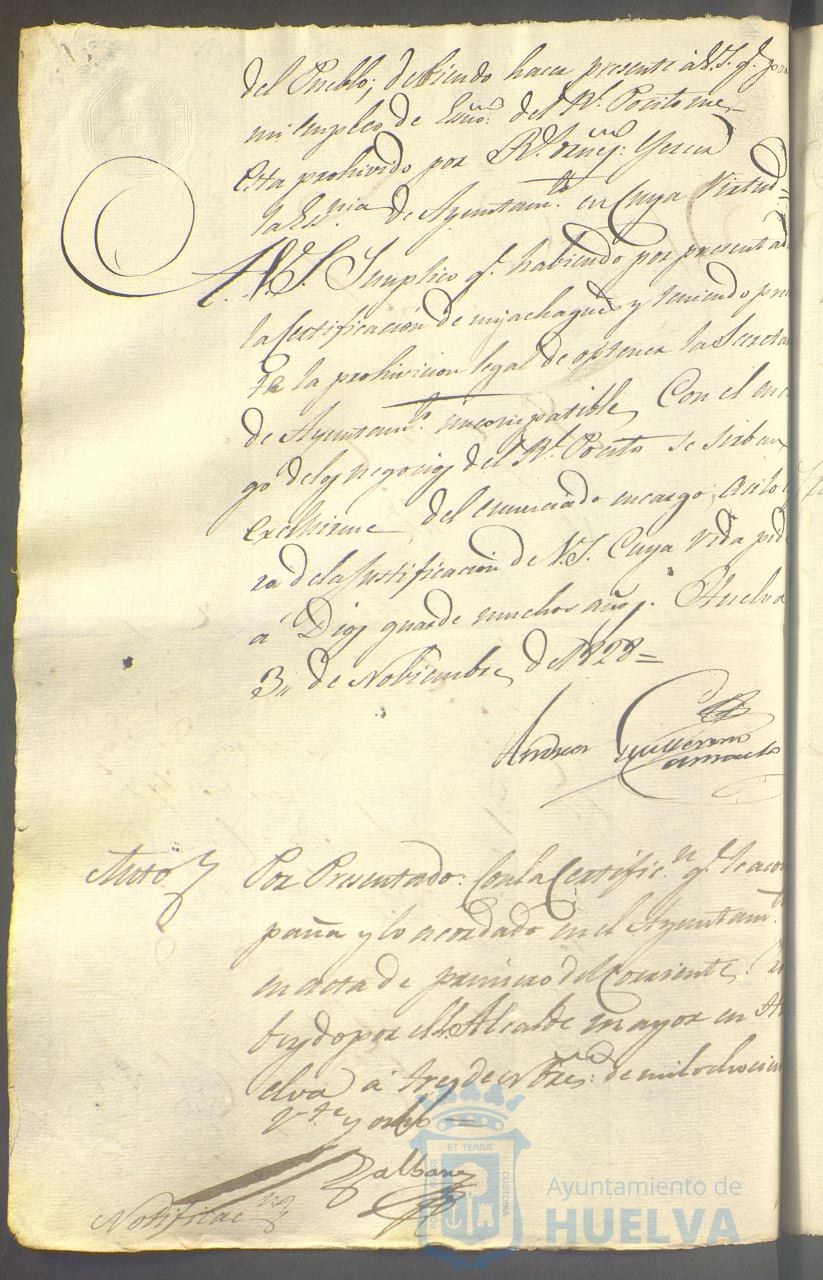 del Pueblo; debiendo hacer presente á V.S. q.e por
mi empleo de Esno. del Rl. Pocito me
esta prohivido por Rl. orn ejercer
la Es.nia de Ayuntam.to en Cuya Virtud=
A V.S. Suplico q.e habiendo por presentada
la Certificacion de mis achaques y teniendo pre
la prohivicion legal de optener la Secreta
de Ayuntam.to incompatible Con el encar
go de los negocios del Rl. Pocito se sirban
exclhirme del enunciado encargo; asi lo
de la Justificacion de V.S. Cuya Vida pide
á Dios guarde muchos años. Huelva
3,, de Nobiembre de 1828=
Andres Guillermo
Auto
Por Presentado: Con la Certific.n q.e le acom
paña y lo acordado en el Ayuntam.to
en acta de primero del Corriente. Pro
beydo por el S. Alcalde mayor en Hu
elva á tres de Nbre: de mil ochocien
V.te y ocho=
Notificac.n
ET TERRÆ
CUSTODIA
Ayuntamiento de
HUELVA